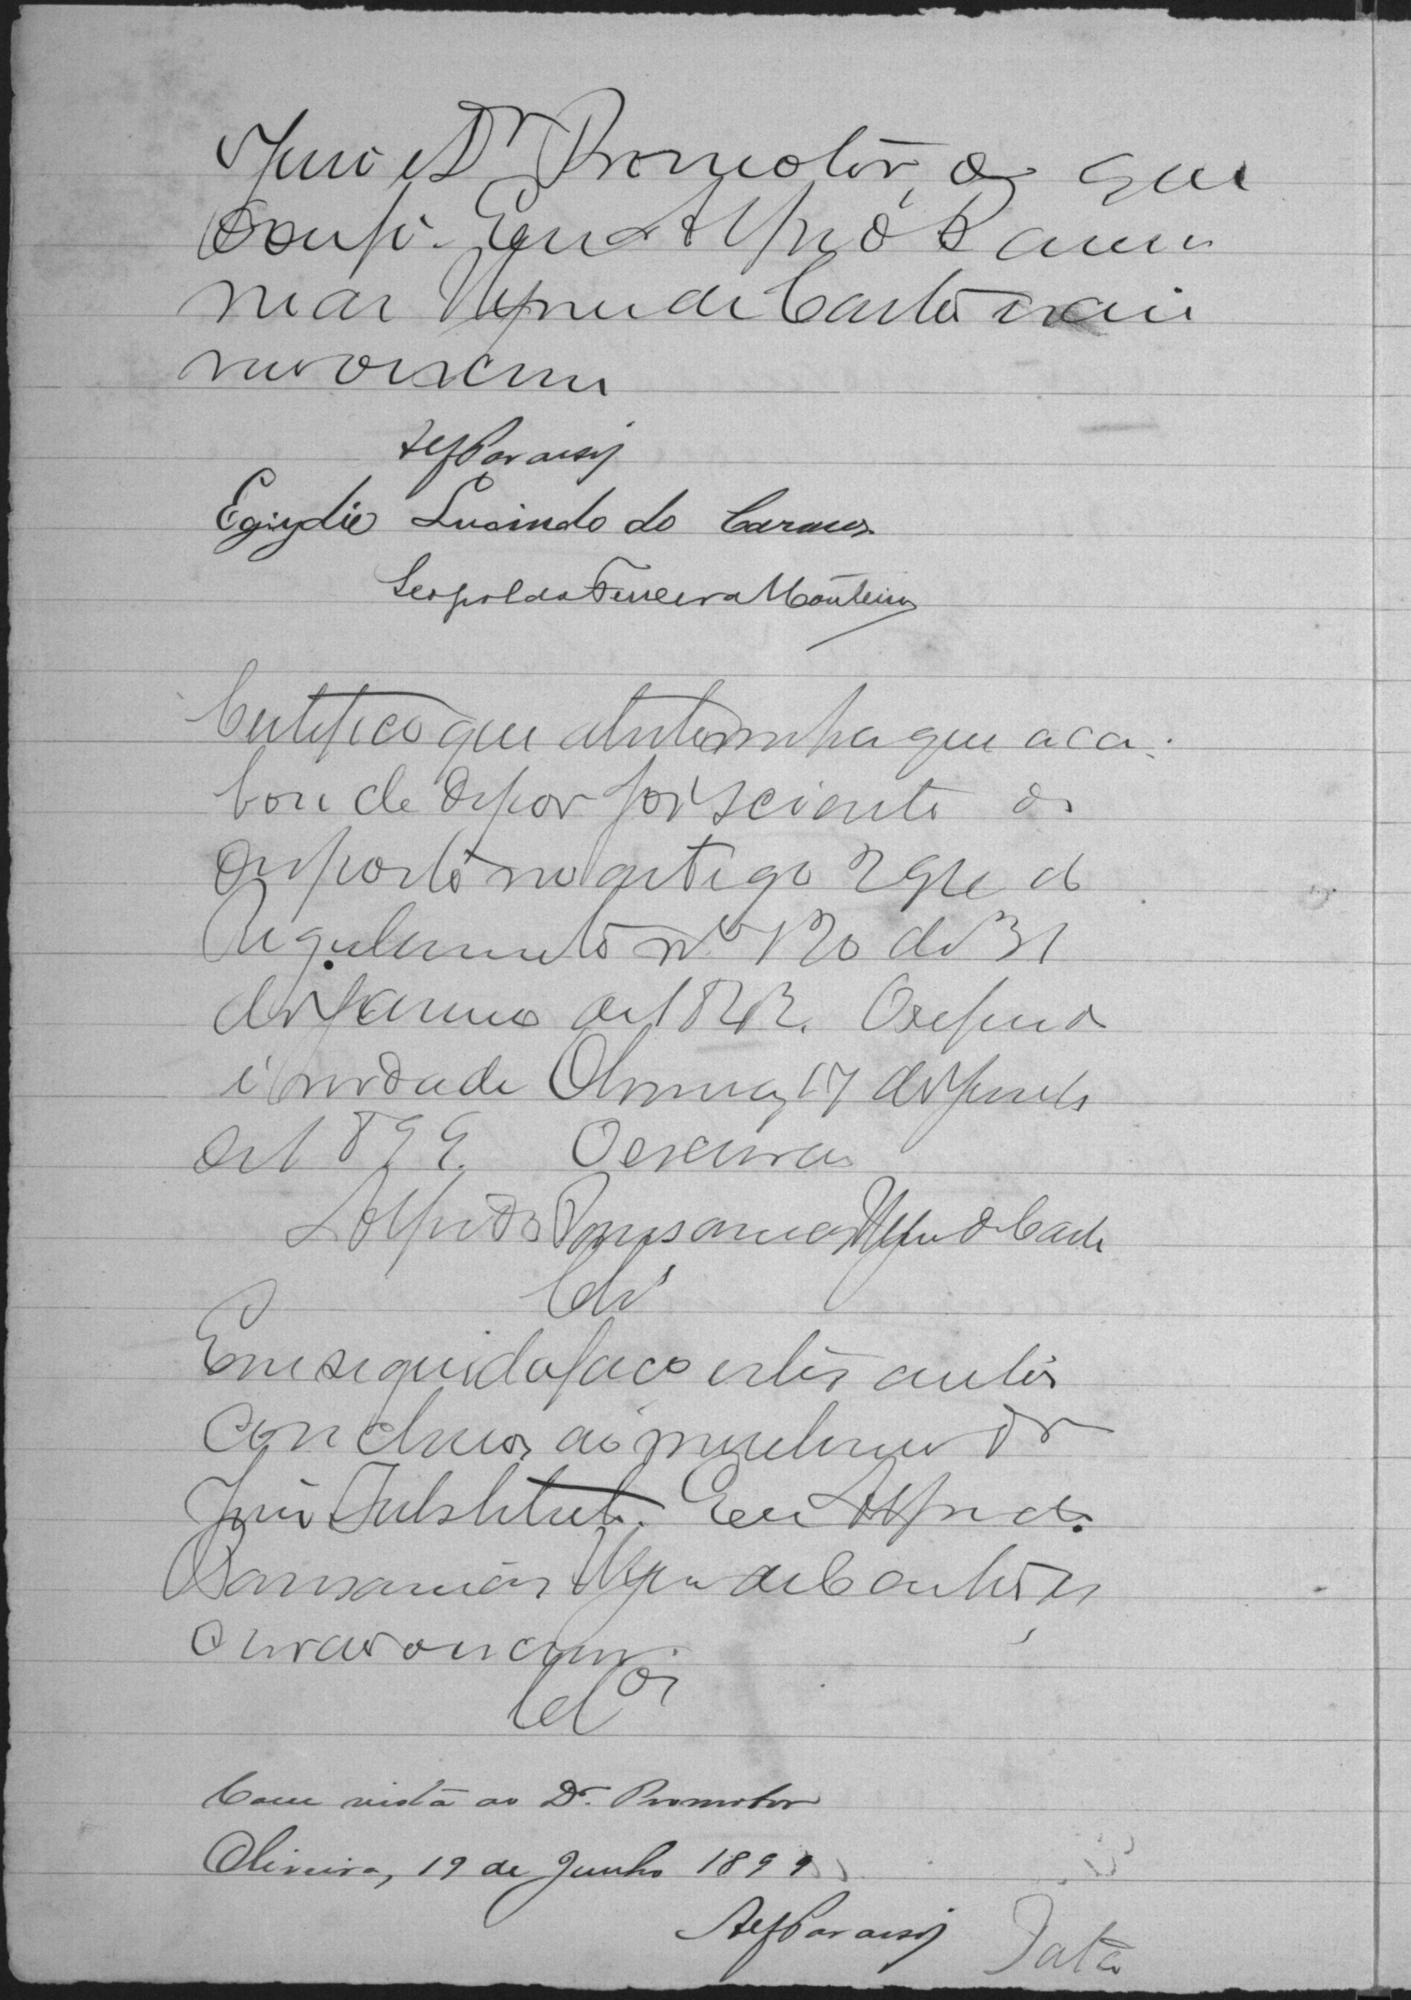 Juis e Dr Promotor, do que
dou fé. Eu Alfrdo
de Castro
escrivi
AlfParaiso
Egiydio Lucindo do Carmo
Leopoldo Ferreira Monteiro
Certifico que a testemunha que aca-
bou de depor foi sciente do
disposto no artigo 294 do
Regulamento nº 120 de 31
de Janeiro de 1842. O referido
é verdade Oliveira, 17 de Junho
de 1899. O escrivão
Alfredo de Castro
Cls
Em seguida faço estes autos
conclusos ao meretissimo Dr
Juis Substituto. Eu Alfredo
de Castro es
crivão o escrivi.
Cls
Com vista ao Dr. Promotor
Oliveira, 19 de Junho 1899
AlfParaiso
Data